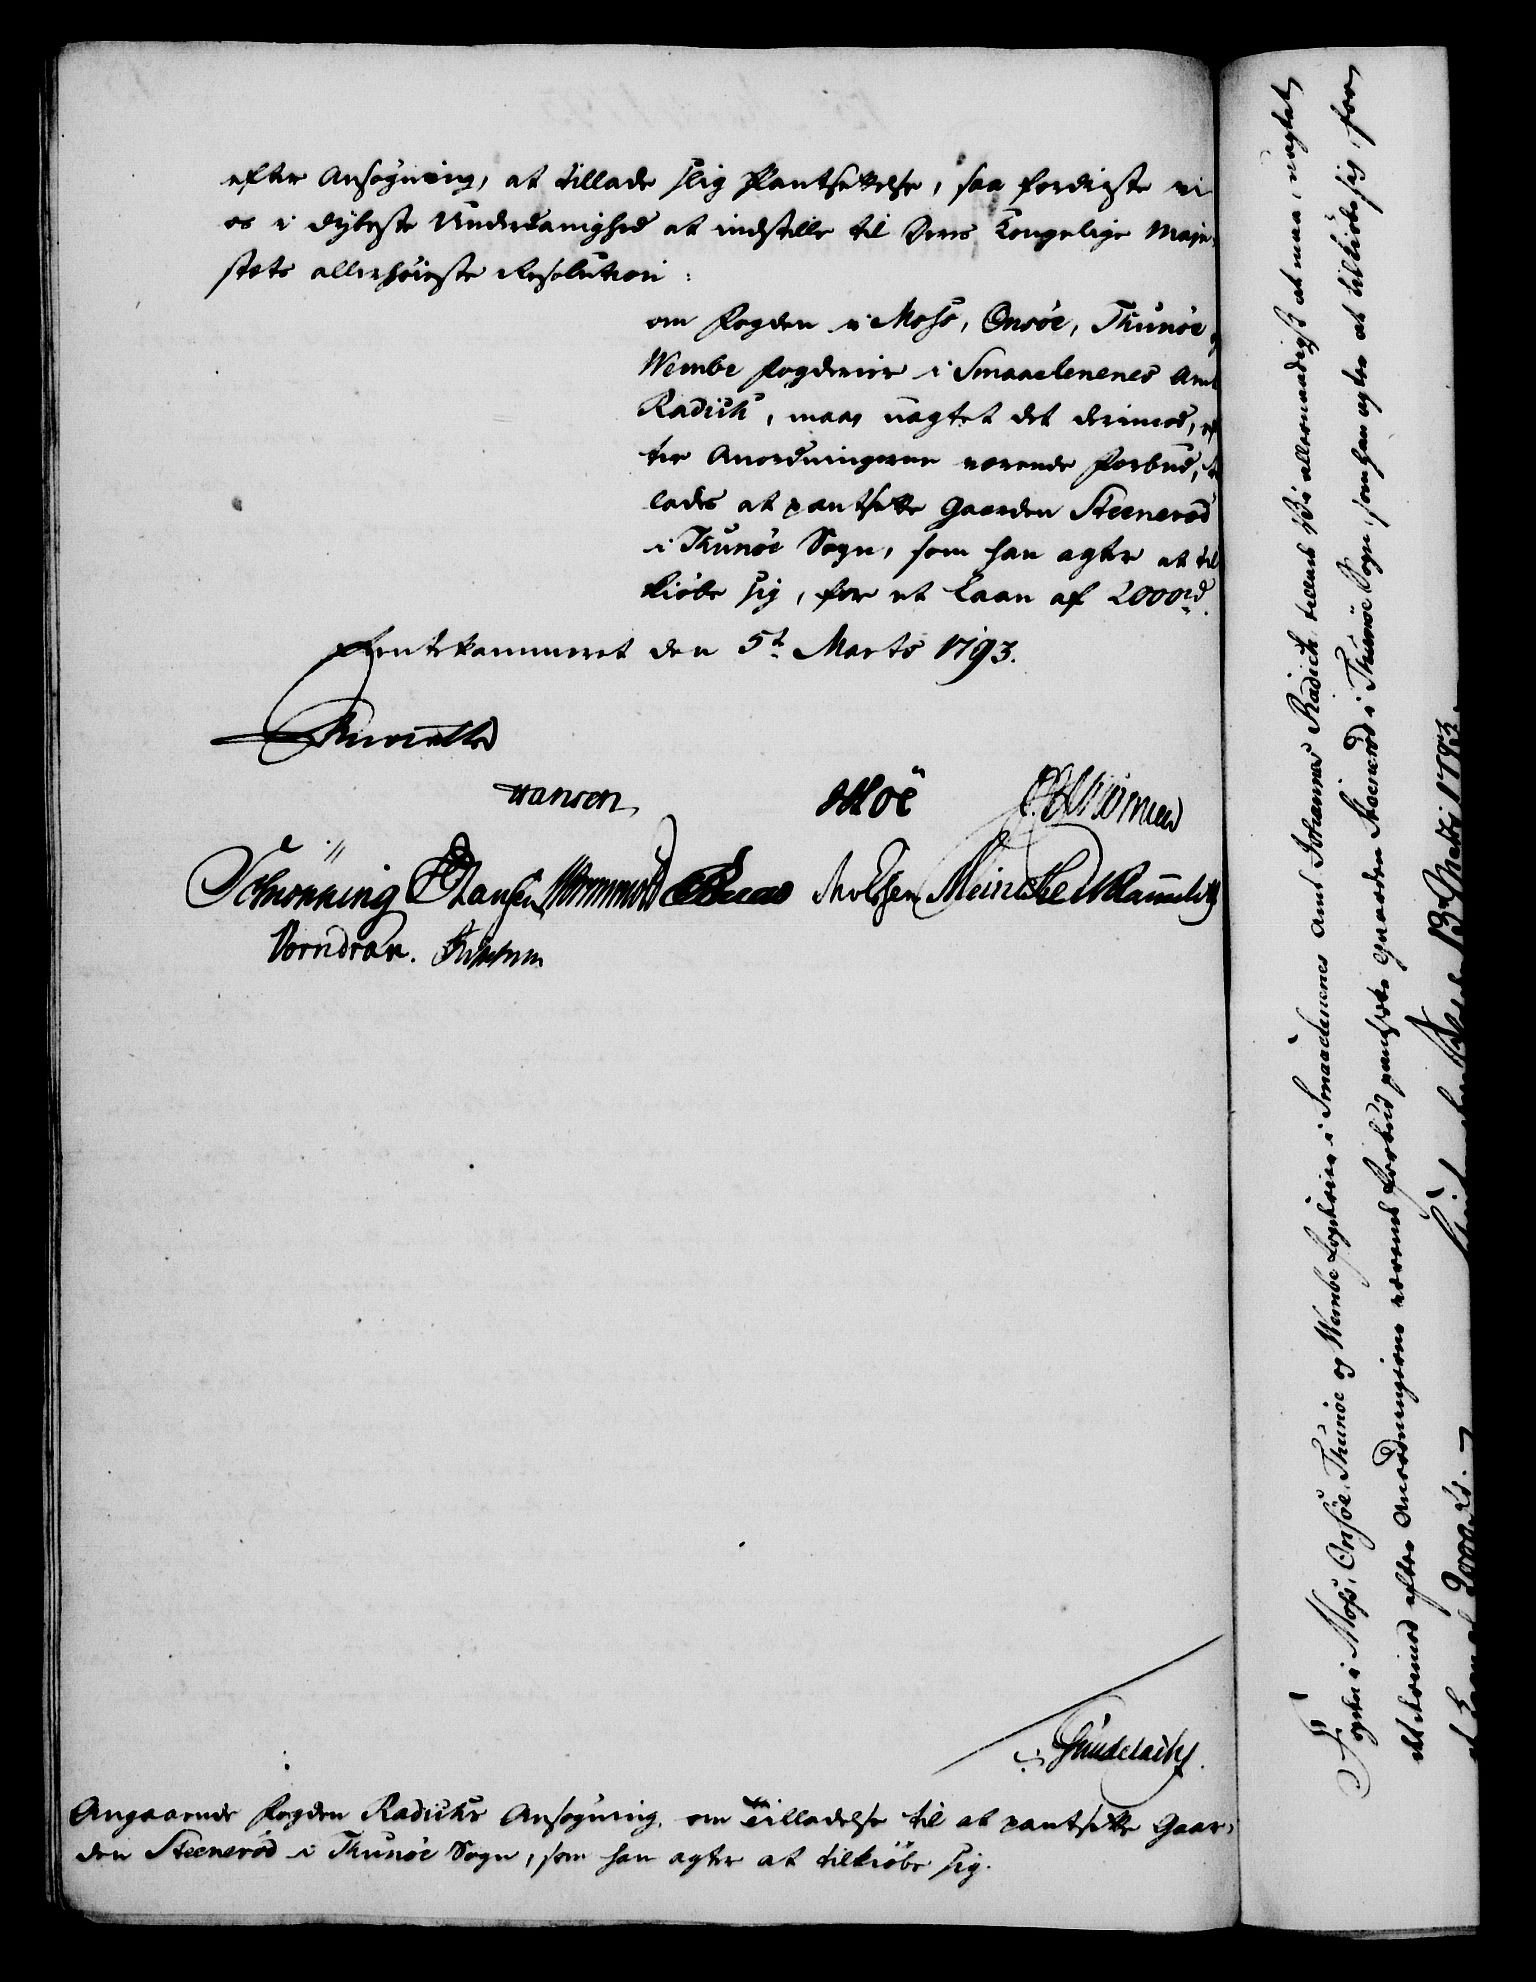 efter Ansøgning, at tillade slig Pantsættelse, saa fordriste vi
os i dybeste Underdanighed at indstille til Deres Kongelige Maje-
stæts allerhøieste Resolution:
om Fogden i Moss, Onsöe, Thunöe og
Wembe Fogderier i Smaaelenenes Amt
Radich, maae uagtet det derimod, ef-
ter Anordningerne værende Forbud, til-
lades at pantsætte Gaarden Steenerød
i Thunöe Sogn, som han agter at til-
kiøbe sig, for et Laan af 2000rd.
Rentekammeret den 5t. Marts 1793.
Hansen
Hoë
Schrønning Hansen Wormskiold Meincke
Vorndran.
Gundelach.
Angaaende Fogden Radichs Ansøgning om Tilladelse til at pantsætte Gaar-
den Steenerød i Thunöe Sogn, som han agter at tilkiøbe sig.
Fogden i Moss, Onsöe, Thunöe og Wembe Fogderier i Smaaelenenes Amt Johannes Radich tillade Vi allernaadigst at maa, uagtet
det derimod efter Anordningerne værende Forbud pantsætte Gaarden Steenerød i Thunöe Sogn, som han agter at tilkiøbe sig, for
et Laan af 2000 rd. 13 Martii 1793.